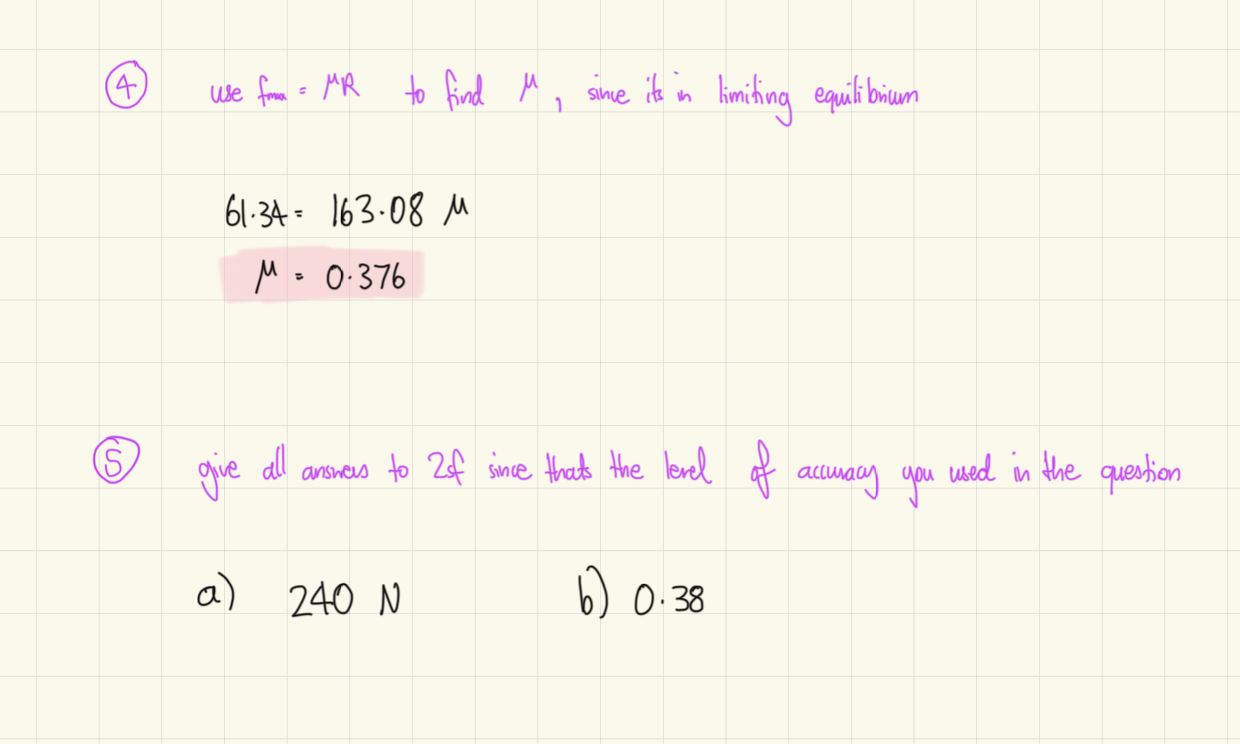 ④ use fmax = μR to find μ, since its in limiting equilibrium
61.34 = 163.08 μ
μ = 0.376
⑤ give all answers to 2sf since thats the level of accuracy you used in the question
a) 240 N b) 0.38